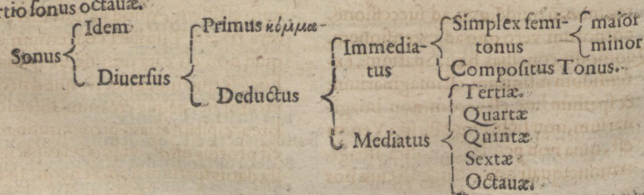 rtio ſonus octauæ.
Sonus
Idem
Diuerſus
Primus κόμμα-
Deductus
Immedia-
tus
Mediatus
Simplex ſemi-
tonus
Compoſitus Tonus.
maior
minor
Tertiæ.
Quartæ
Quintæ
Sextæ
Octauæ.